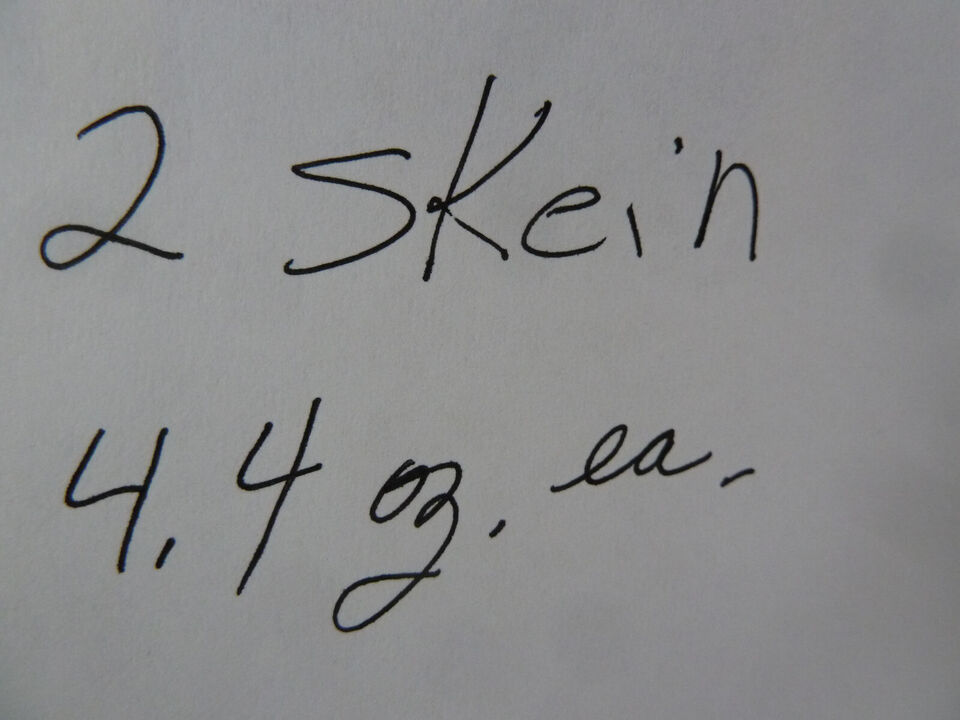 2 Skein
4.4 oz. ea.